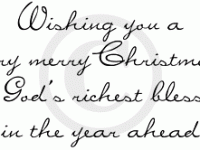 Wishing you a
ry merry Christma
God's richest bless
in the year ahead